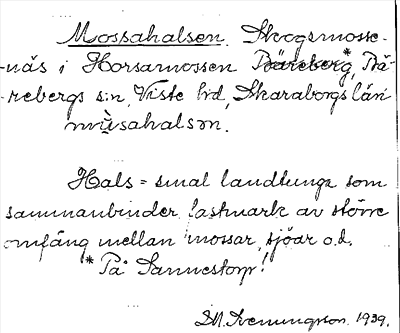 Mossahalsen. Skogsmosse-
-näs i Horsamossen Bäreberg*, Bä-
-rebergs s:n, Viste hd, Skaraborgs län
mùsahalsən.
Hals = smal landtunga som
sammanbinder fastmark av större
omfång mellan mossar, sjöar o.d.
* På Sannestorp!
D.M. Svenningson 1939.